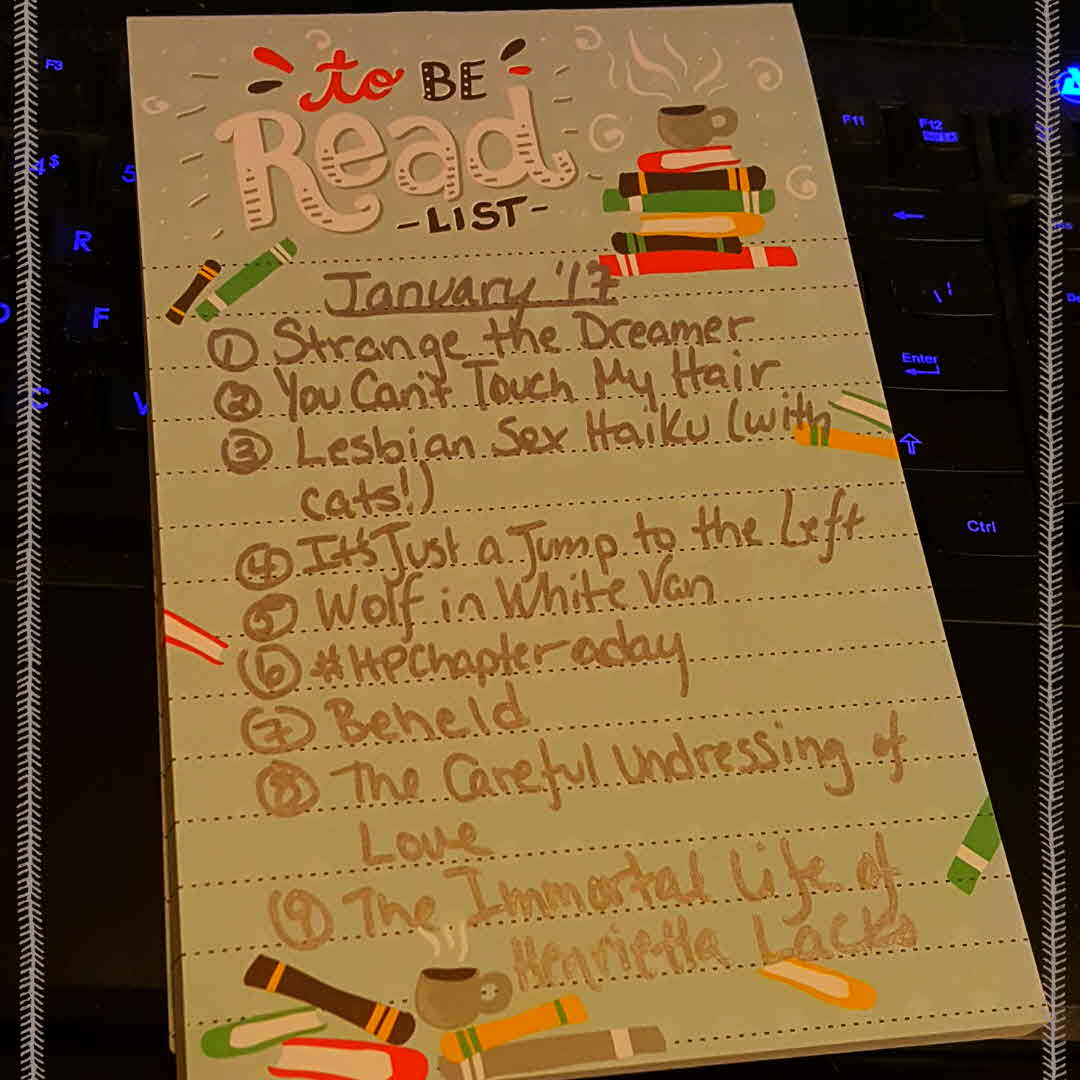 to BE
Read
-LIST-
January '17
① Strange the Dreamer
② You Can't Touch My Hair
③ Lesbian Sex Haiku (with
cats!)
④ It's Just a Jump to the Left
⑤ Wolf in White Van
⑥ #HPChapteraday
⑦ Beheld
⑧ The Careful Undressing of
Love
⑨ The Immortal Life of
Henrietta Lacks
F3
4 $
5
R
F
C
V
F11
F12
Enter
Ctrl